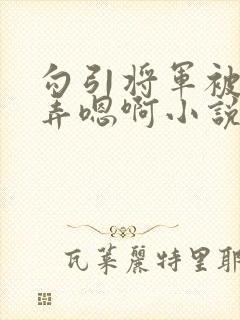 勾引将軍被
弄嗯啊小説
瓦莱麗特里耶